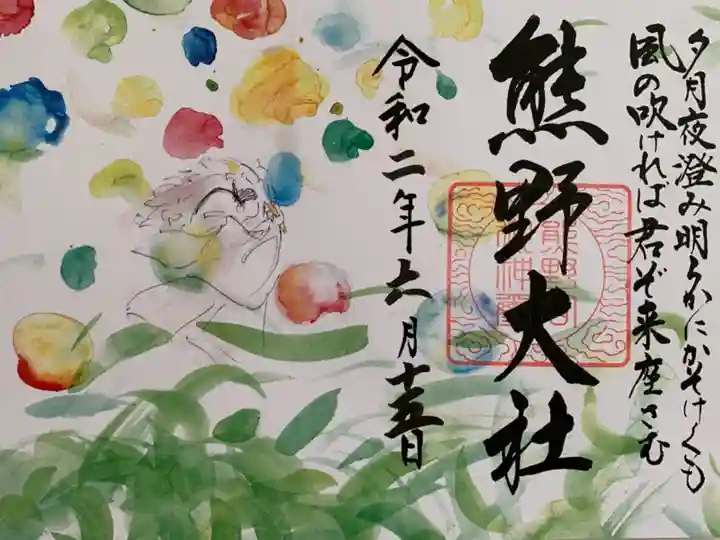 夕月夜澄み明らかにかそけくも
風の吹ければ君ぞ来座さむ
熊野大社
令和二年六月十五日